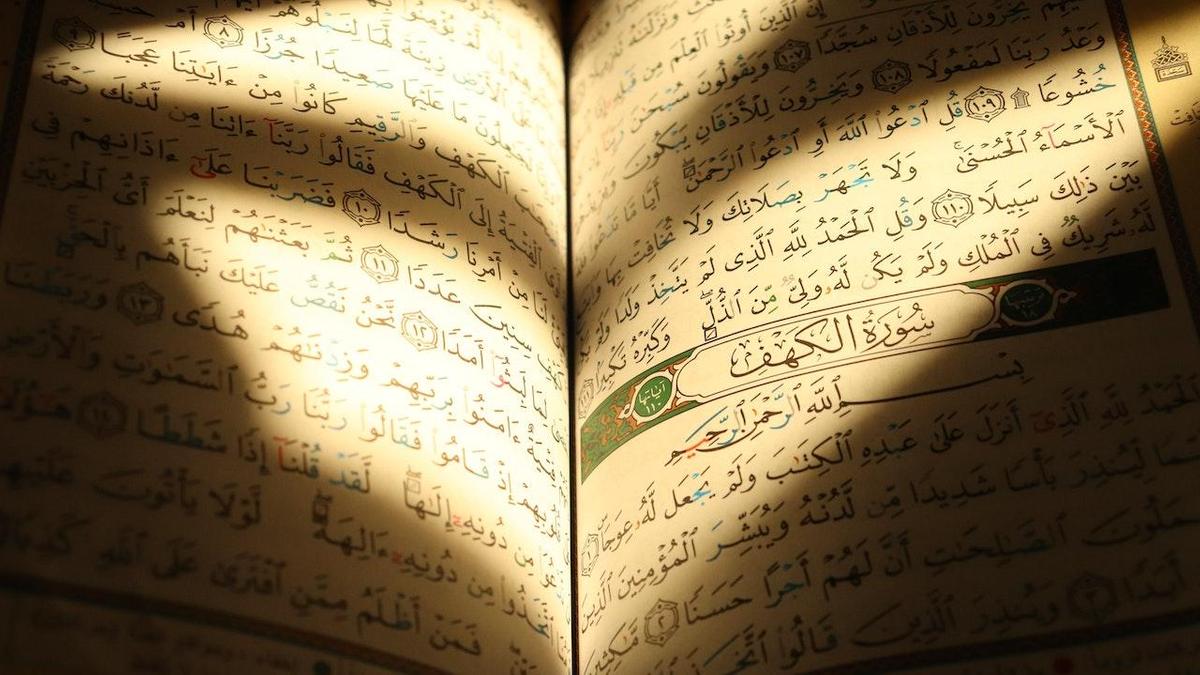 إِنَّ ٱلَّذِينَ أُوتُوا۟ ٱلْعِلْمَ مِن قَبْلِهِۦٓ
يَخِرُّونَ لِلْأَذْقَانِ سُجَّدًا ١٠٧ وَيَقُولُونَ سُبْحَٰنَ رَبِّنَآ
وَعْدُ رَبِّنَا لَمَفْعُولًا ١٠٨ وَيَخِرُّونَ لِلْأَذْقَانِ يَبْكُونَ وَيَزِيدُهُمْ
خُشُوعًا ۩ ١٠٩ قُلِ ٱدْعُوا۟ ٱللَّهَ أَوِ ٱدْعُوا۟ ٱلرَّحْمَٰنَ ۖ أَيًّا مَّا تَدْعُوا۟
ٱلْأَسْمَآءُ ٱلْحُسْنَىٰ ۚ وَلَا تَجْهَرْ بِصَلَاتِكَ وَلَا تُخَافِتْ بِهَا
بَيْنَ ذَٰلِكَ سَبِيلًا ١١٠ وَقُلِ ٱلْحَمْدُ لِلَّهِ ٱلَّذِى لَمْ يَتَّخِذْ وَلَدًا وَلَمْ يَكُن
لَّهُۥ شَرِيكٌ فِى ٱلْمُلْكِ وَلَمْ يَكُن لَّهُۥ وَلِىٌّ مِّنَ ٱلذُّلِّ ۖ وَكَبِّرْهُ تَكْبِيرًۢا
سُورَةُ الكَهْفِ
ترتيبها ١٨
آياتها ١١٠
بِسْمِ ٱللَّهِ ٱلرَّحْمَٰنِ ٱلرَّحِيمِ
ٱلْحَمْدُ لِلَّهِ ٱلَّذِىٓ أَنزَلَ عَلَىٰ عَبْدِهِ ٱلْكِتَٰبَ وَلَمْ يَجْعَل لَّهُۥ عِوَجَاۜ ١
قَيِّمًا لِّيُنذِرَ بَأْسًا شَدِيدًا مِّن لَّدُنْهُ وَيُبَشِّرَ ٱلْمُؤْمِنِينَ ٱلَّذِينَ
يَعْمَلُونَ ٱلصَّٰلِحَٰتِ أَنَّ لَهُمْ أَجْرًا حَسَنًا ٢ مَّٰكِثِينَ
أَبَدًا ٣ وَيُنذِرَ ٱلَّذِينَ قَالُوا۟ ٱتَّخَذَ
لِنَبْلُوَهُمْ
زِينَةً لَّهَا
٨ أَمْ
لَجَٰعِلُونَ مَا عَلَيْهَا صَعِيدًا جُرُزًا
ٱلْكَهْفِ وَٱلرَّقِيمِ كَانُوا۟ مِنْ ءَايَٰتِنَا عَجَبًا ٩
ٱلْفِتْيَةُ إِلَى ٱلْكَهْفِ فَقَالُوا۟ رَبَّنَآ ءَاتِنَا مِن لَّدُنكَ رَحْمَةً
لَنَا مِنْ أَمْرِنَا رَشَدًا ١٠ فَضَرَبْنَا عَلَىٰٓ ءَاذَانِهِمْ فِى
ٱلْكَهْفِ سِنِينَ عَدَدًا ١١ ثُمَّ بَعَثْنَٰهُمْ لِنَعْلَمَ أَىُّ ٱلْحِزْبَيْنِ
لِمَا لَبِثُوٓا۟ أَمَدًا ١٢ نَّحْنُ نَقُصُّ عَلَيْكَ نَبَأَهُم بِٱلْحَقِّ
فِتْيَةٌ ءَامَنُوا۟ بِرَبِّهِمْ وَزِدْنَٰهُمْ هُدًى ١٣ وَرَبَطْنَا
قُلُوبِهِمْ إِذْ قَامُوا۟ فَقَالُوا۟ رَبُّنَا رَبُّ ٱلسَّمَٰوَٰتِ وَٱلْأَرْضِ
مِن دُونِهِۦٓ إِلَٰهًا ۖ لَّقَدْ قُلْنَآ إِذًا شَطَطًا ١٤ هَٰٓؤُلَآءِ
ٱتَّخَذُوا۟ مِن دُونِهِۦٓ ءَالِهَةً ۖ لَّوْلَا يَأْتُونَ عَلَيْهِم
فَمَنْ أَظْلَمُ مِمَّنِ ٱفْتَرَىٰ عَلَى ٱللَّهِ كَذِبًا